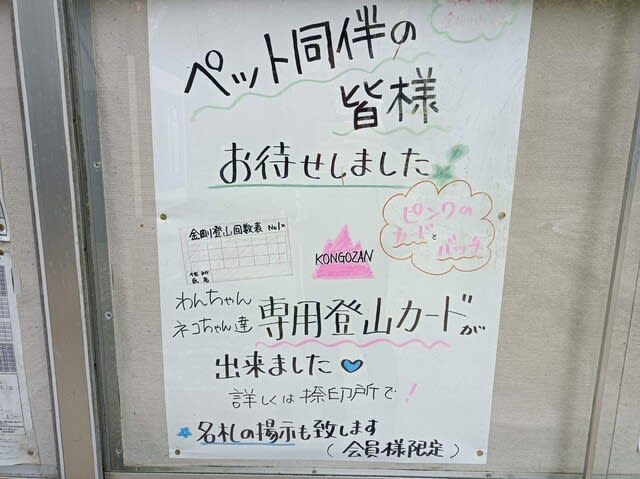 ペット同伴の
皆様
お待せしました
ピンクの
カードと
バッチ
金剛登山回数表 No1×
住所
氏名
KONGOZAN
わんちゃん
ネコちゃん達 専用登山カードが
出来ました
詳しくは捺印所で！
名札の掲示も致します
（会員様限定）